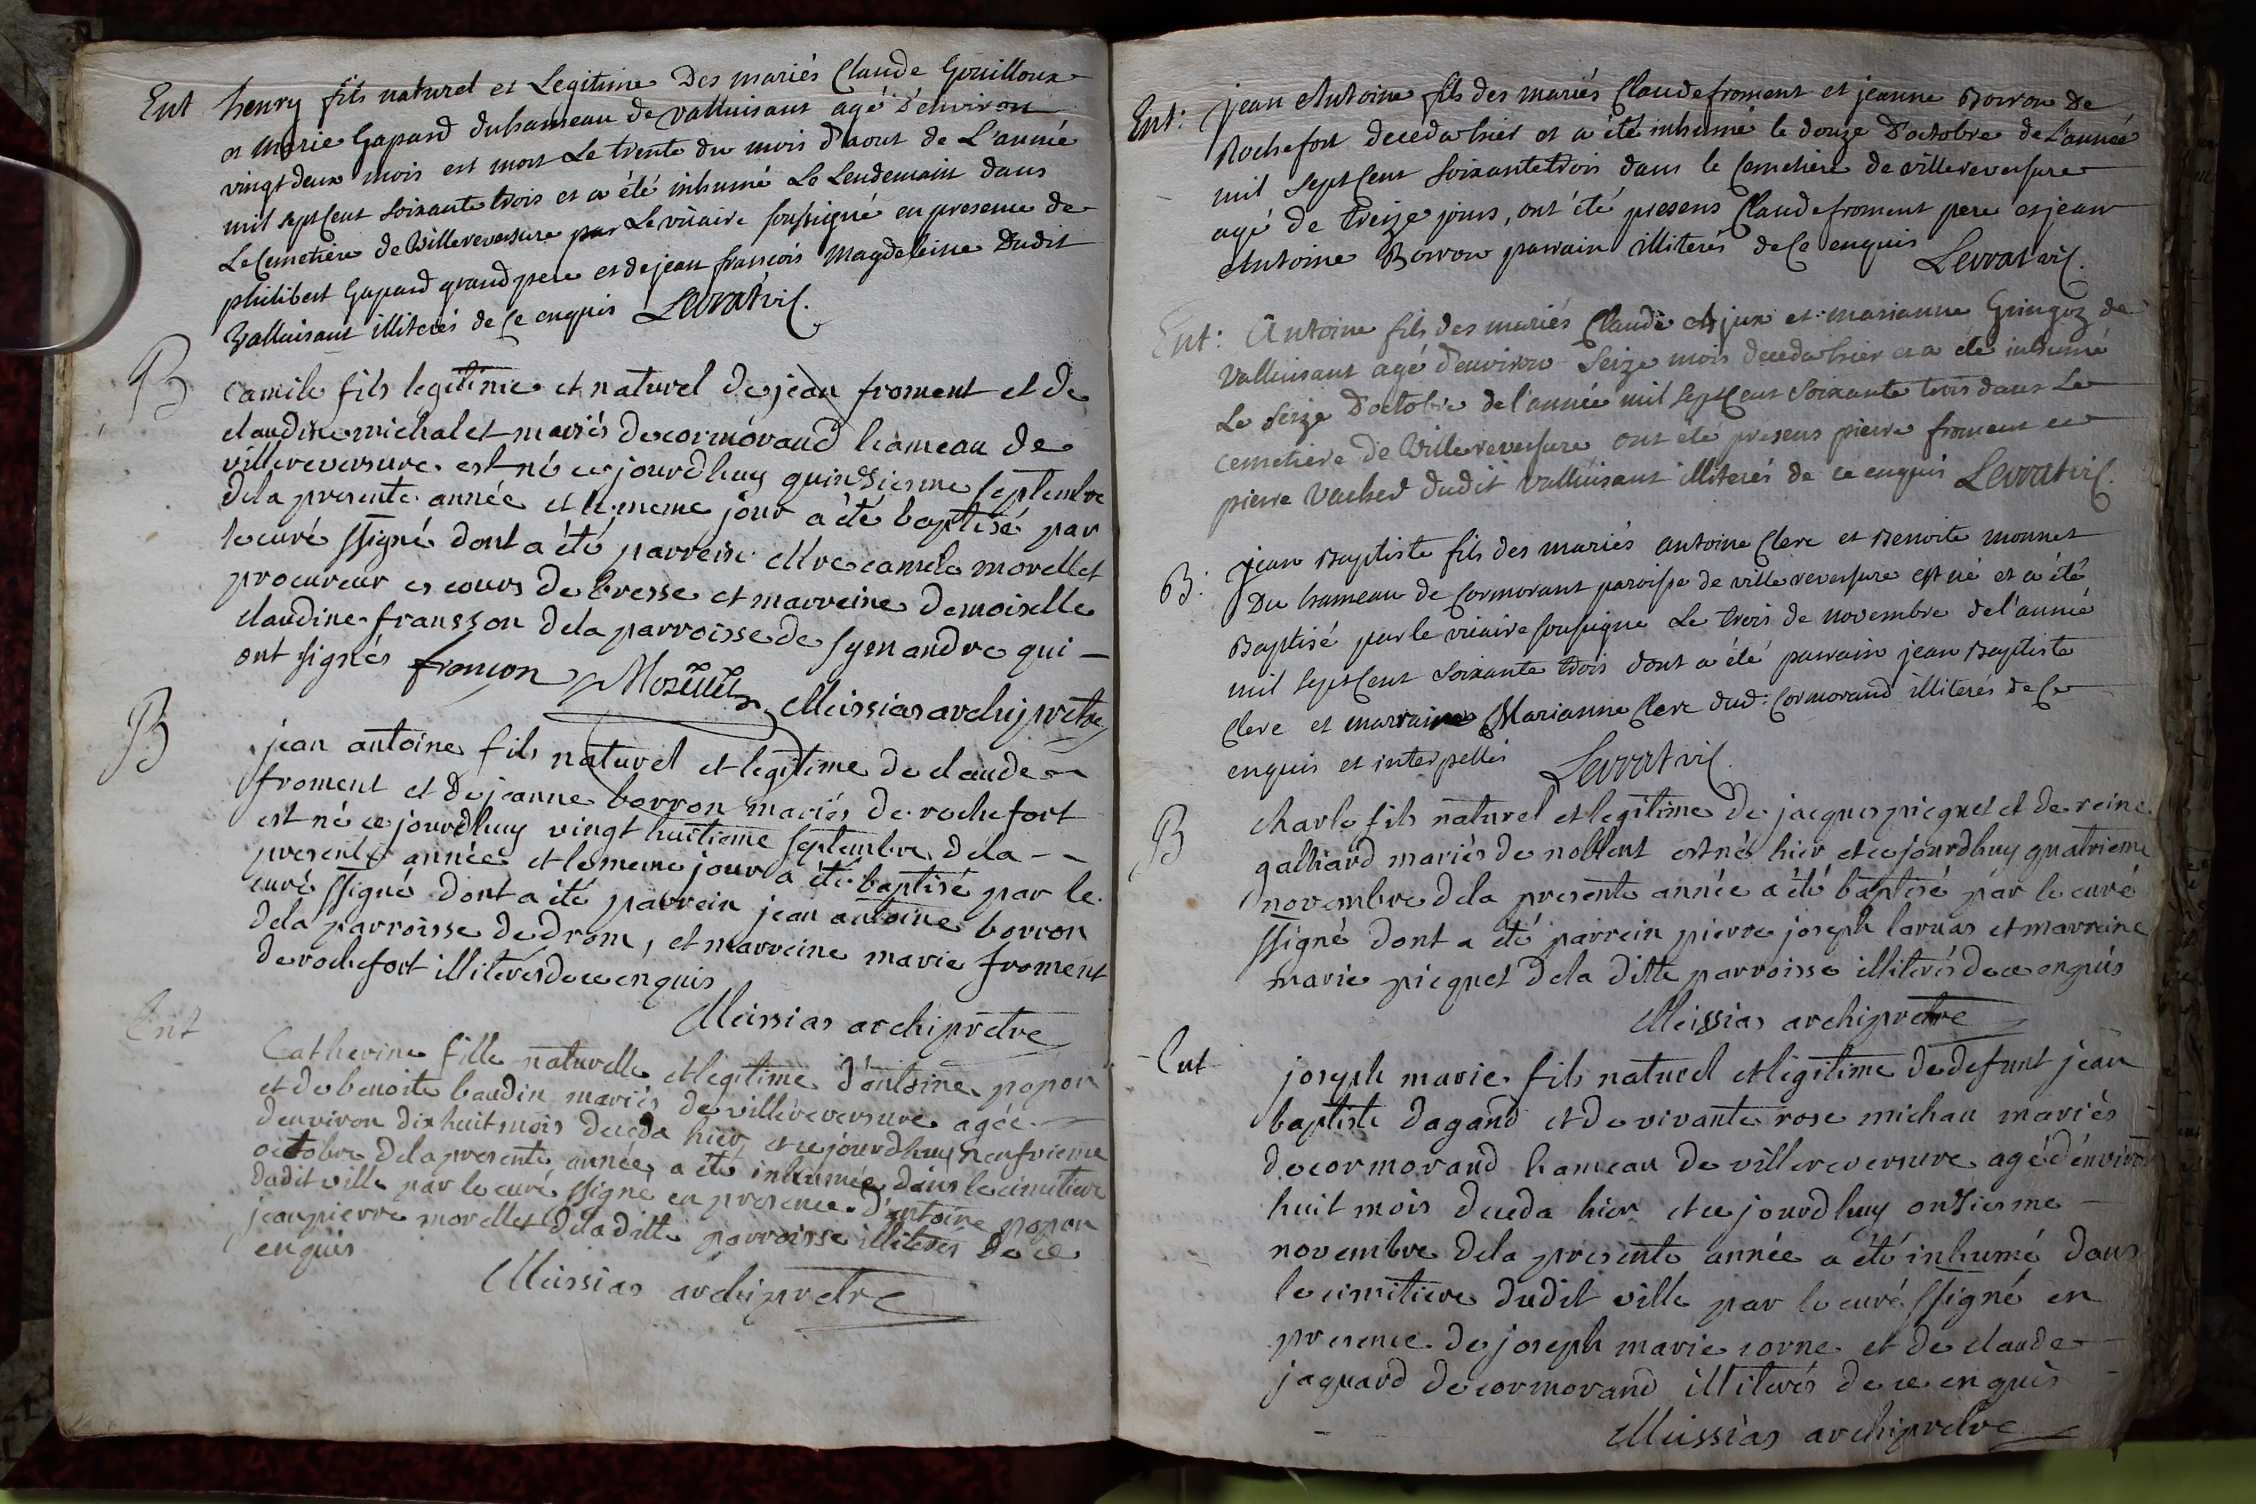 Ent henry fils naturel et Legitime Des mariés Claude Gouilloux
et Marie Gapard du hameau de valluisant agé D'environ
vingt deux mois est mort Le trente du mois D'aout de L'année
mil sept Cent soixante trois et a été inhumé Le Lendemain dans
Le Cemetiere de Villereversure par Le vicaire soussigné en presence de
philibert Gapard grand pere et de jean françois Magdeleine Dudit
Valluisant illiterés de Ce enquis Levrat vic.
B
Camile fils legitime et naturel de jean froment et de
claudine michalet mariés de cormorand hameau de
villereversure est né ce jourdhuy quinzieme septembre
dela presente année et le meme jour a été baptisé par
le curé ssigné dont a été parrein Mre camile morellet
procureur es cours de bresse et marreine demoiselle
claudine fransson dela parroisse de symandre qui
ont signés françon Morellet Meissias archiprêtre
B
jean antoine fils naturel et legitime de claude
froment et de jeanne borron mariés de rochefort
est né ce jourdhuy vingt huitieme septembre dela
presente année et le meme jour a été baptisé par le
curé ssigné dont a été parrein jean antoine borron
dela parroisse de drom, et marreine marie froment
de rochefort illiterés de ce enquis
Meissias archiprêtre
Ent
Catherine fille naturelle et legitime d'antoine popon
et de benoite baudin mariés de villereversure agée
denviron dix huit mois deceda hier et ce jourdhuy neufvieme
octobre dela presente année a été inhumée dans le cimitiere
dudit ville par le curé ssigné en presence d'antoine popon
jean pierre morellet dela ditte parroisse illiterés de ce
enquis
Meissias archiprêtre
Ent: jean Antoine fils des mariés Claude froment et jeanne Borron De
Rochefort deceda hier et a été inhumé le douze D'octobre de L'année
mil sept Cent soixante trois dans le Cemetiere de villereversure
agé de treize jours, ont été presens Claude froment pere et jean
Antoine Borron parrain illiterés de Ce enquis Levrat vic.
Ent: Antoine fils des mariés Claude Ajux et marianne Gringoz de
Valluisant agé d'environ Seize mois deceda hier et a été inhumé
Le seize D'octobre de l'année mil sept Cent soixante trois dans Le
cemetiere de Villereversure ont été presens pierre froment et
pierre Vacher dudit valluisant illiterés de ce enquis Levrat vic.
B: jean Baptiste fils des mariés antoine Clerc et Benoite monnet
Du hameau de Cormorant paroisse de villereversure est né et a été
Baptisé par le vicaire soussigné Le trois de novembre de l'année
mil sept Cent soixante trois dont a été parrain jean Baptiste
Clerc et marraine Marianne Clerc dud: Cormorand illiterés de Ce
enquis et interpellés Levrat vic.
B
charle fils naturel et legitime de jacques picquet et de reine
galliard mariés de nollent est né hier et ce jourdhuy quatrieme
novembre dela presente année a été baptisé par le curé
ssigné dont a été parrein pierre joseph laruas et marreine
marie picquet dela ditte parroisse illiterés de ce enquis
Meissias archiprêtre
Ent
joseph marie fils naturel et legitime de defunt jean
baptiste dagand et de vivante rose michau mariés
de cormorand hameau de villereversure agé d'environ
huit mois deceda hier et ce jourdhuy onzieme
novembre dela presente année a été inhumé dans
le cimitiere dudit ville par le curé ssigné en
presence de joseph marie sorne et de claude
jaquard de cormorand illiterés de ce enquis
Meissias archiprêtre